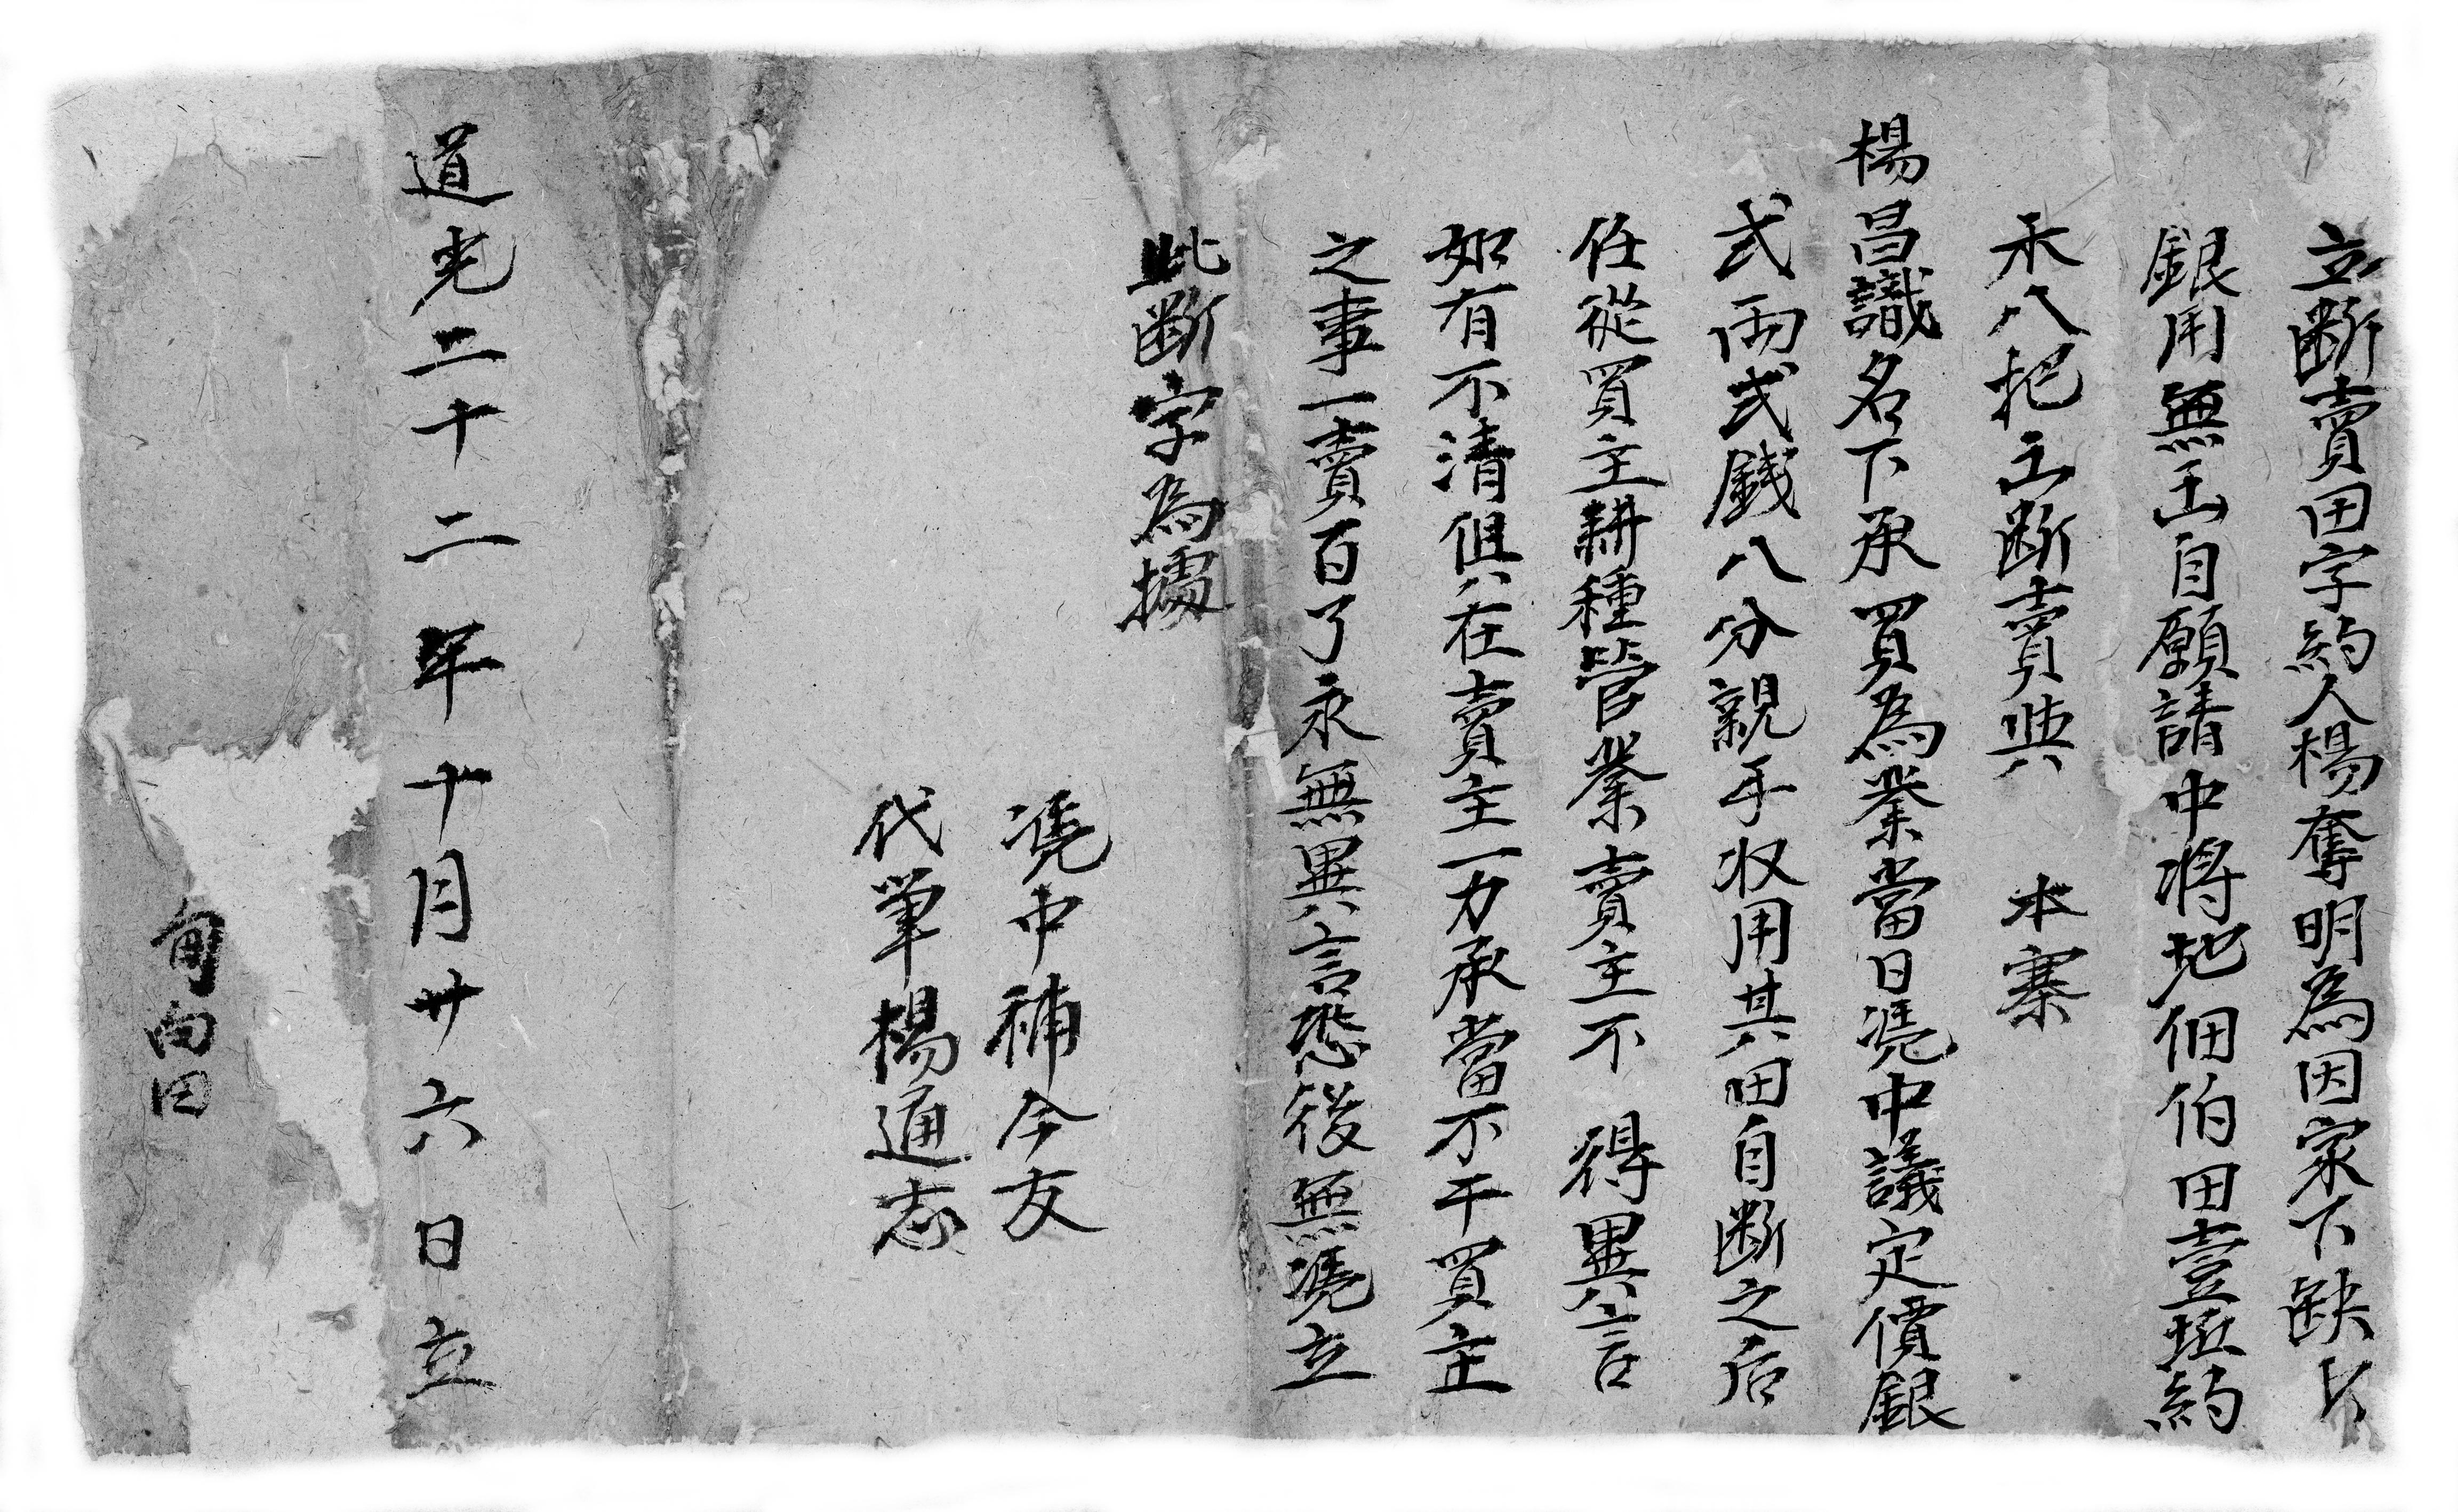 立断賣田字約人楊奪明為因家下缺少
銀用無出自願請中將地佃伯田壹坵約
禾八把立断賣與　本寨
楊昌識名下承買為業當日凴中議定價銀
弍両弍錢八分親手收用其田自断之后
任從買主耕種管業賣主不得異言
如有不清俱在賣主一力承當不干買主
之事一賣百了永無異言恐後無凴立
此断字為據
凴中補今友
代筆楊通志
道光二十二年十月廿六日立
向田